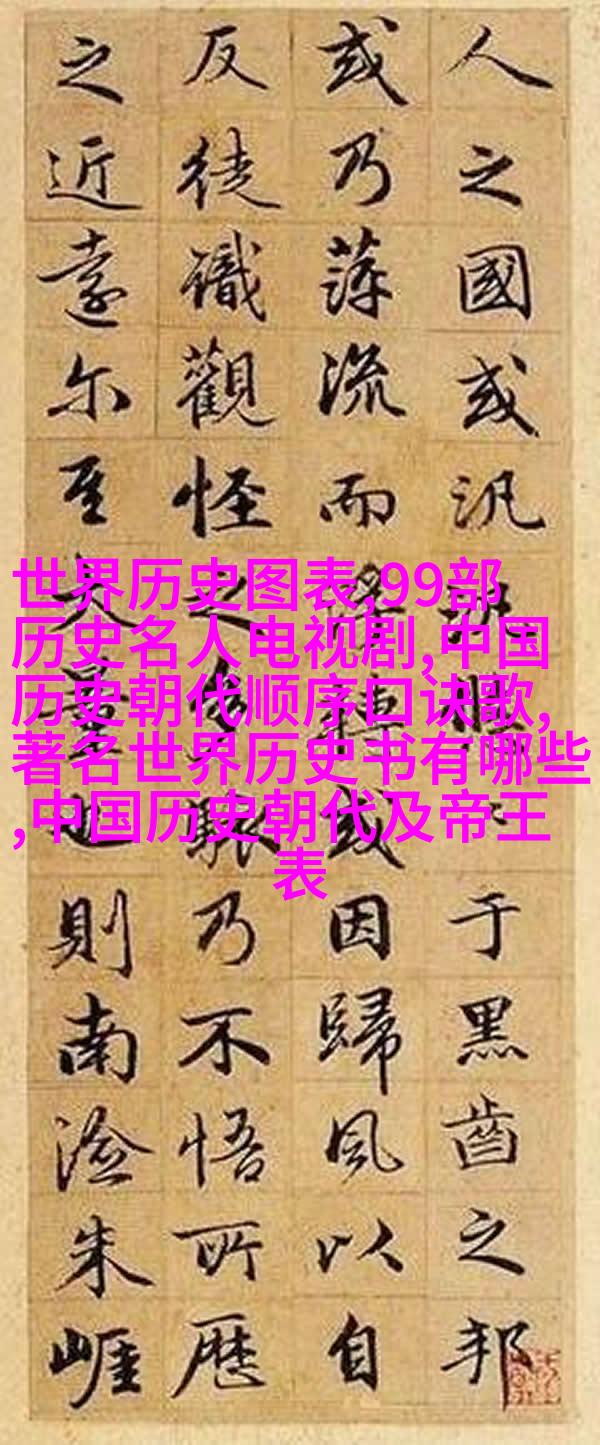 人之國或汎于黑齒之邦
或乃萍流而轉或因歸風以自
反徒識觀怪之多駭乃不悟所歷
之近遠尔至大量也則南澰朱崕
世界历史图表,99部
历史名人电视剧,中国
历史朝代顺序口诀歌,
著名世界历史书有哪些
,中国历史朝代及帝王
表